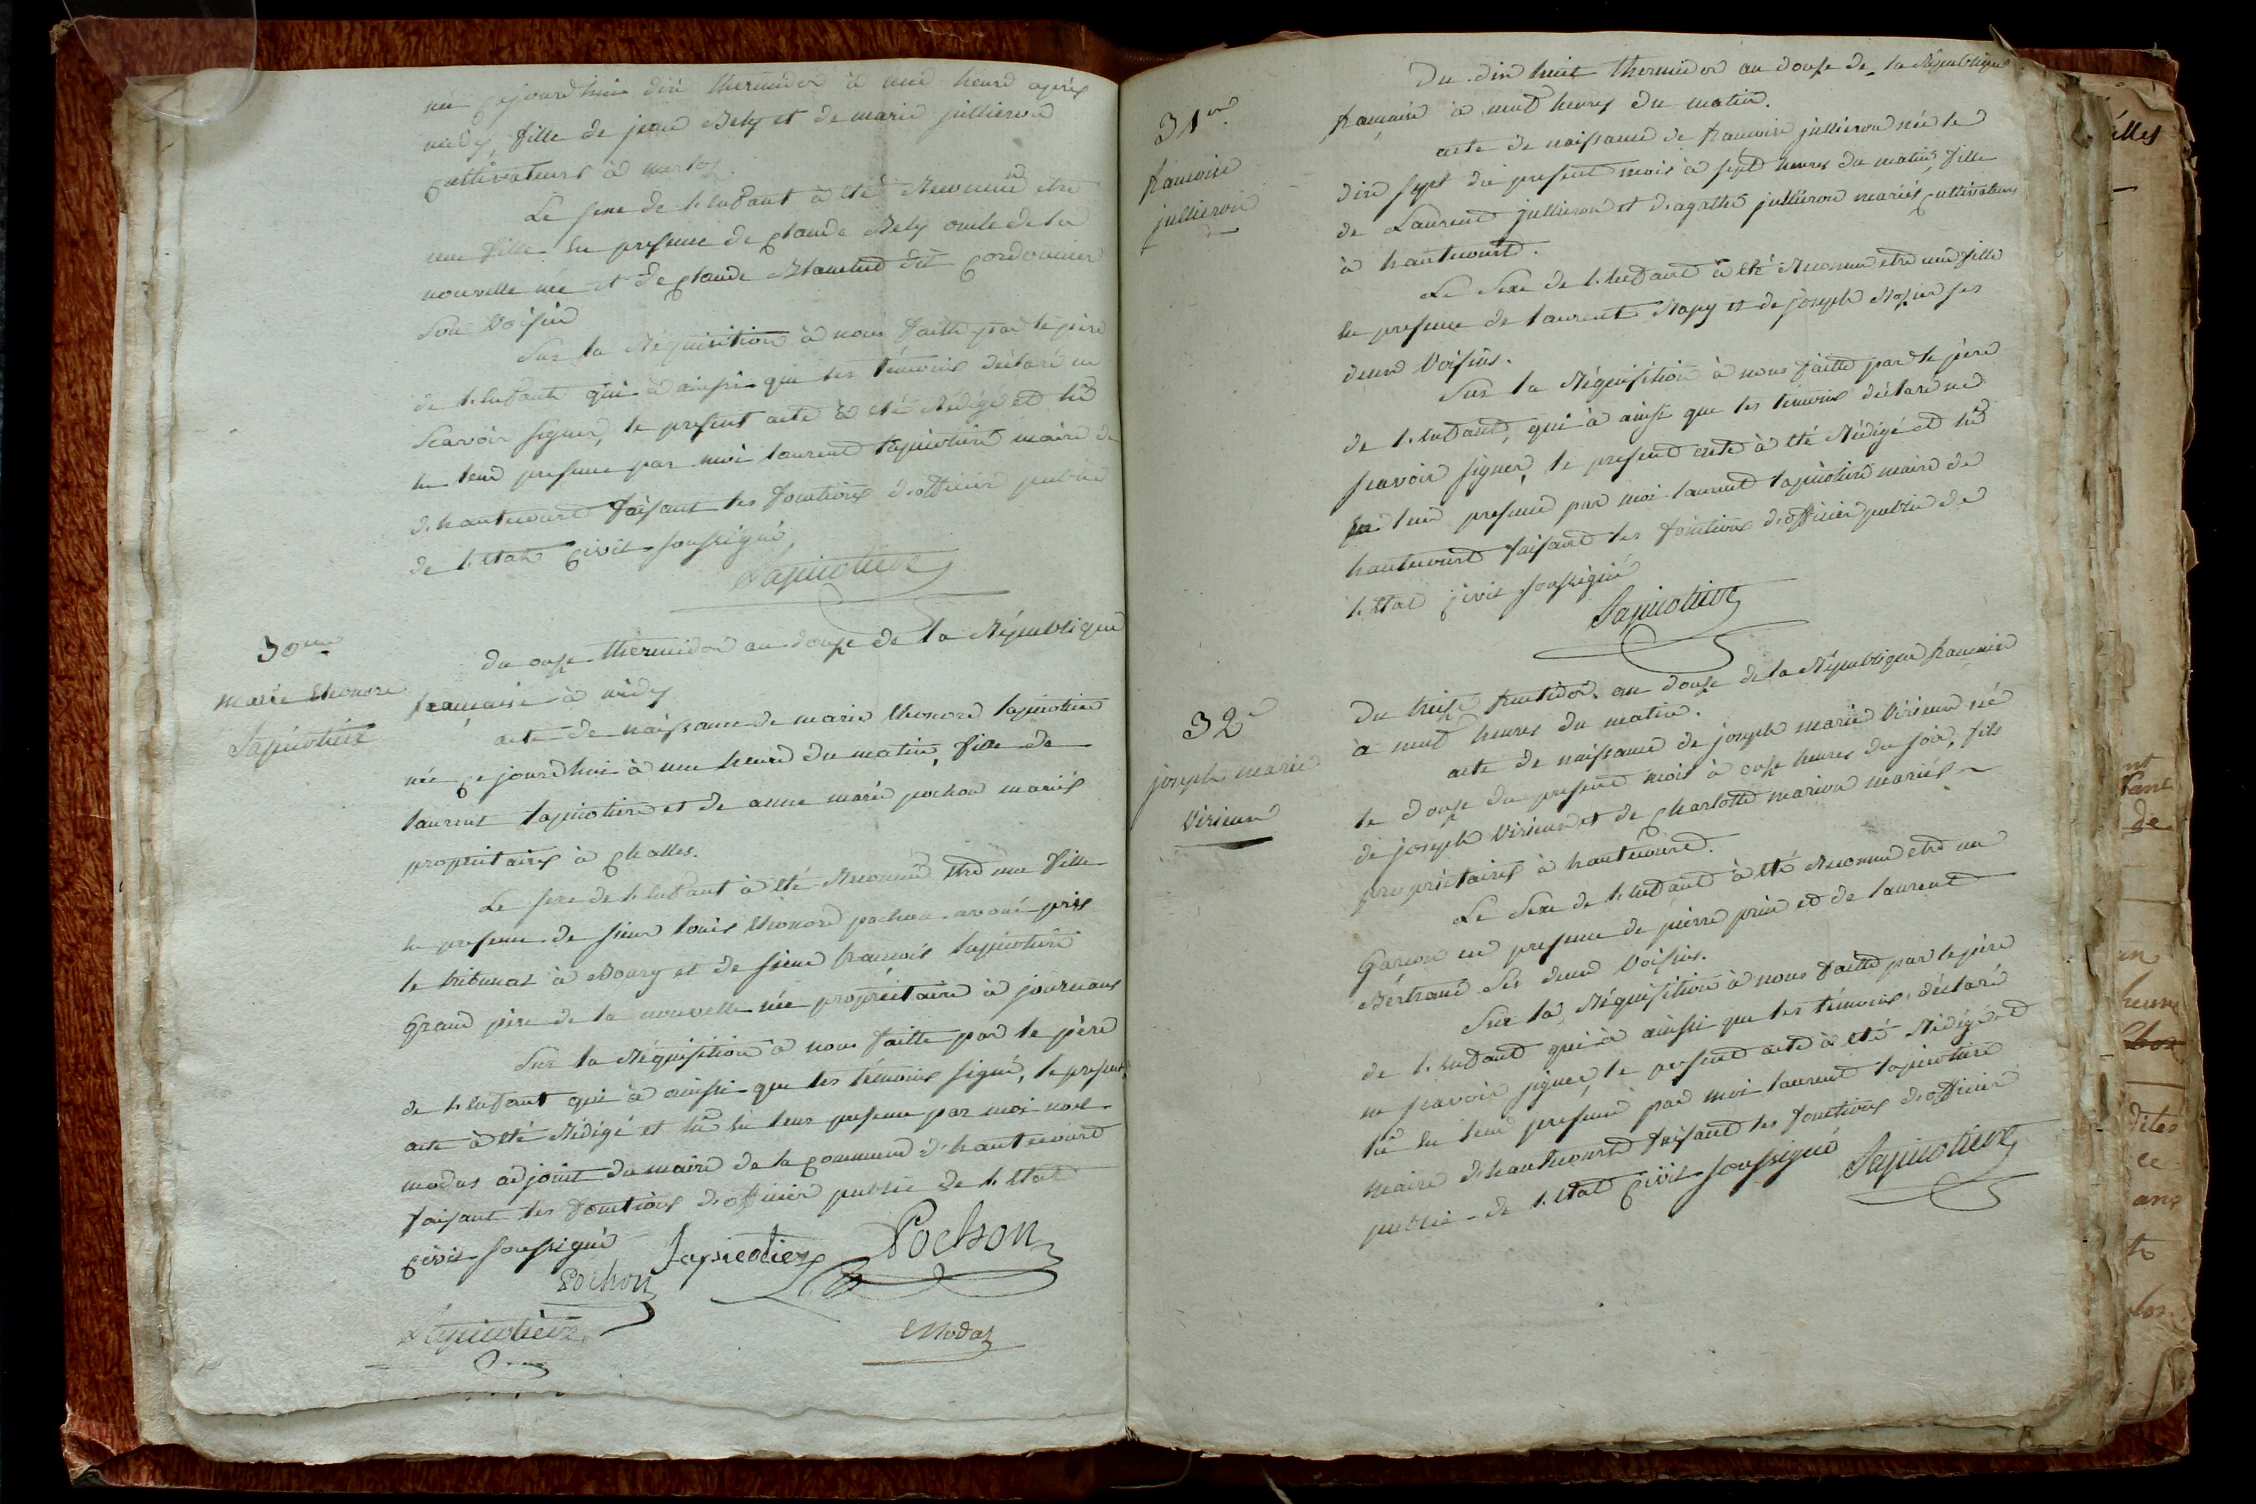 née cejourdhuie dix thermidor à une heure après
midy, fille de jean Bely et de marie jullieron
cultivateurs à
Le sexe de l'enfant à été Reconnu etre
une fille En presence de claude Bely oncle de la
nouvelle née et de claude dit cordonnier
son voisin
Sur la Réquisition à nous faitte par le père
de l'enfant qui à ainsi que les témoins déclaré ne
scavoir signer, le present acte à été Rédigé et lû
En leur presence par moi laurent lapicotiere maire de
d'hautecourt faisant les fonctions d'officier public
de l'état civil soussigné,
Lapicotiere
30me
marie Eleonore
Lapicotiere
Du onze thermidor an douze de la République
francaise à midy
acte de naissance de marie Eleonore lapicotiere
née cejourdhui à une heure du matin, fille de
laurent lapicotiere et de anne marie pochon mariés
propriétaires à challes.
Le sexe de l'enfant à été Reconnu etre une fille
En presence de sieur louis Eleonore pochon avoué près
le tribunal à Bourg et de sieur francois lapicotiere
Grand père de la nouvelle née propriétaire à journans
Sur la Réquisition à nous faitte par le père
de l'enfant qui à ainsi que les témoins signé, le present
acte à été Rédigé et lû En leur presence par moi noel
modas adjoint du maire de la commune d'hautecourt
faisant les fonctions d'officier public de l'état
civil soussigné
Lapicotiere Pochon
Pochon
Lapicotiere
Modas
31me
francoise
jullieron
Du dix huit thermidor an douze de la République
francaise à neuf heures du matin.
acte de naissance de francoise jullieron née le
dix sept du present mois à sept heures du matin, fille
de Laurent jullieron et d'agathe jullieron mariés cultivateurs
à hautecourt.
Le Sexe de l'enfant à été Reconnu etre une fille
En presence de laurent et de joseph ses
deux voisins.
Sur la Réquisition à nous faitte par le père
de l'enfant, qui à ainsi que les temoins déclaré ne
scavoir signer, le present acte à été Rédigé et lû
En leur presence par moi laurent lapicotiere maire de
hautecourt faisant les fonctions d'officier public de
l'état civil soussigné
Lapicotiere
32e
joseph marie
Virieux
Du treize fructidor an douze de la République francaise
à neuf heures du matin.
acte de naissance de joseph marie Virieux né
le douze du present mois à onze heures du soir, fils
de joseph Virieux et de charlotte marion mariés
propriétaires à hautecourt.
Le Sexe de l'enfant à été Reconnu etre un
Garcon en presence de pierre prin et de laurent
Bertrand Ses deux voisins.
Sur la Réquisition à nous faitte par le père
de l'enfant qui à ainsi que les témoins, déclaré
ne scavoir signer, le present acte à été Rédigé et
lû En leur presence par moi laurent lapicotiere
maire d'hautecourt faisant les fonctions d'officier
public de l'état civil soussigné Lapicotiere